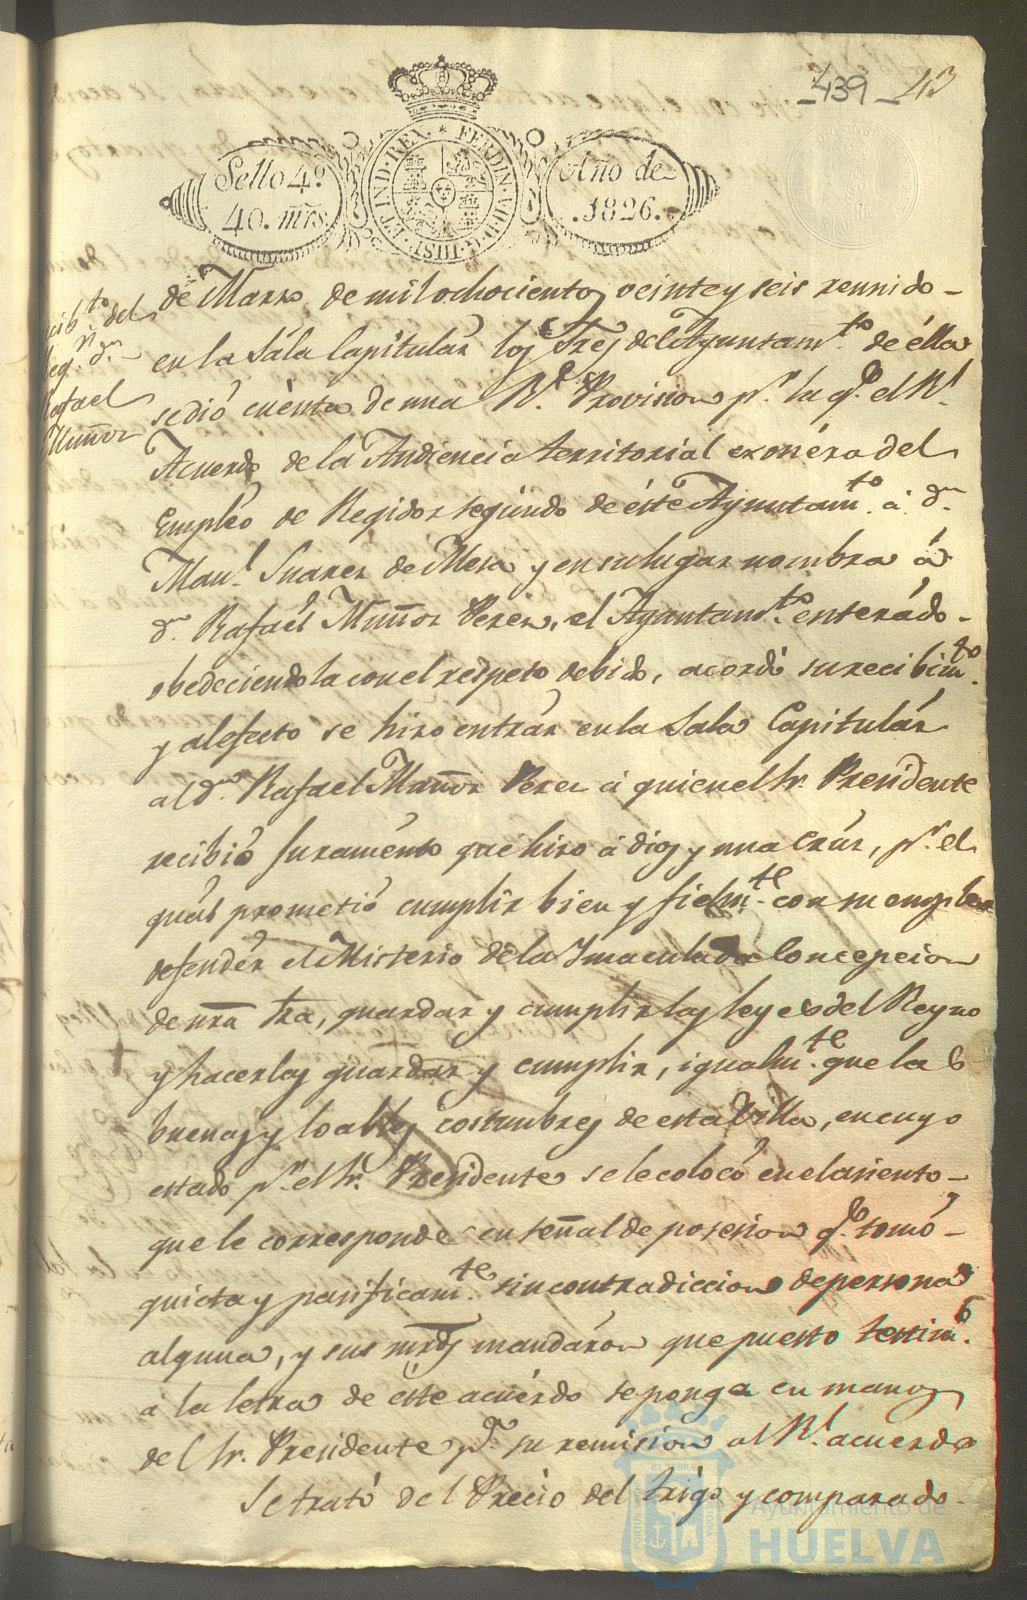 439 43
Sello 4º
40. mrs.
HISP. ET IND. REX. * FERDIN. VII. D. G.
Año de
.1826.
del
dn
Rafael
Muñoz
de Marzo de mil ochocientos veinte y seis reunido-
en la Sala Capitulár los Sres del Ayuntamto. de élla
se dió cuénta de una Rl. Provision pr. la qe. el Rl.
Acuerdo de la Audiencia territorial exonéra del
Empléo de Regidor segúndo de éste Ayuntamto. á dn.
Manl. Suarez de Mesa y en su lugar nombra á
dn. Rafaél Muñoz Perez, el Ayuntamto. enterádo-
obedeciendola con el respeto debido, acordó su recibimto.
y al efecto se hizo entrár en la Sala Capitulár
al dn. Rafael Muñoz Perez á quien el Sr. Presidente
recibió Juraménto que hizo á dios y una Crúz, pr. el
quál prometió cumplir bien y fielmte. con su empleo
defendér el Misterio de la Ymaculada Concepcion
de nra Sra, guardar y cumplir las leyes del Reyno
y hacerlas guardar y cumplir, igualmte. que las
buenas y loables costumbres de esta Villa, en cuyo
estado pr. el Sr. Presidente se le colocó en el asiento-
que le corresponde en señal de posesion qe. tomó-
quieta y pasificamte. sin contradiccion de persona
alguna, y sus mrds mandáron que puesto testimo.
á la letra de éste acuérdo se ponga en manos
del Sr. Presidente pa. su remision al Rl. acuerdo
Se trató del Précio del trigo y comparado-
Ayuntamiento de
HUELVA